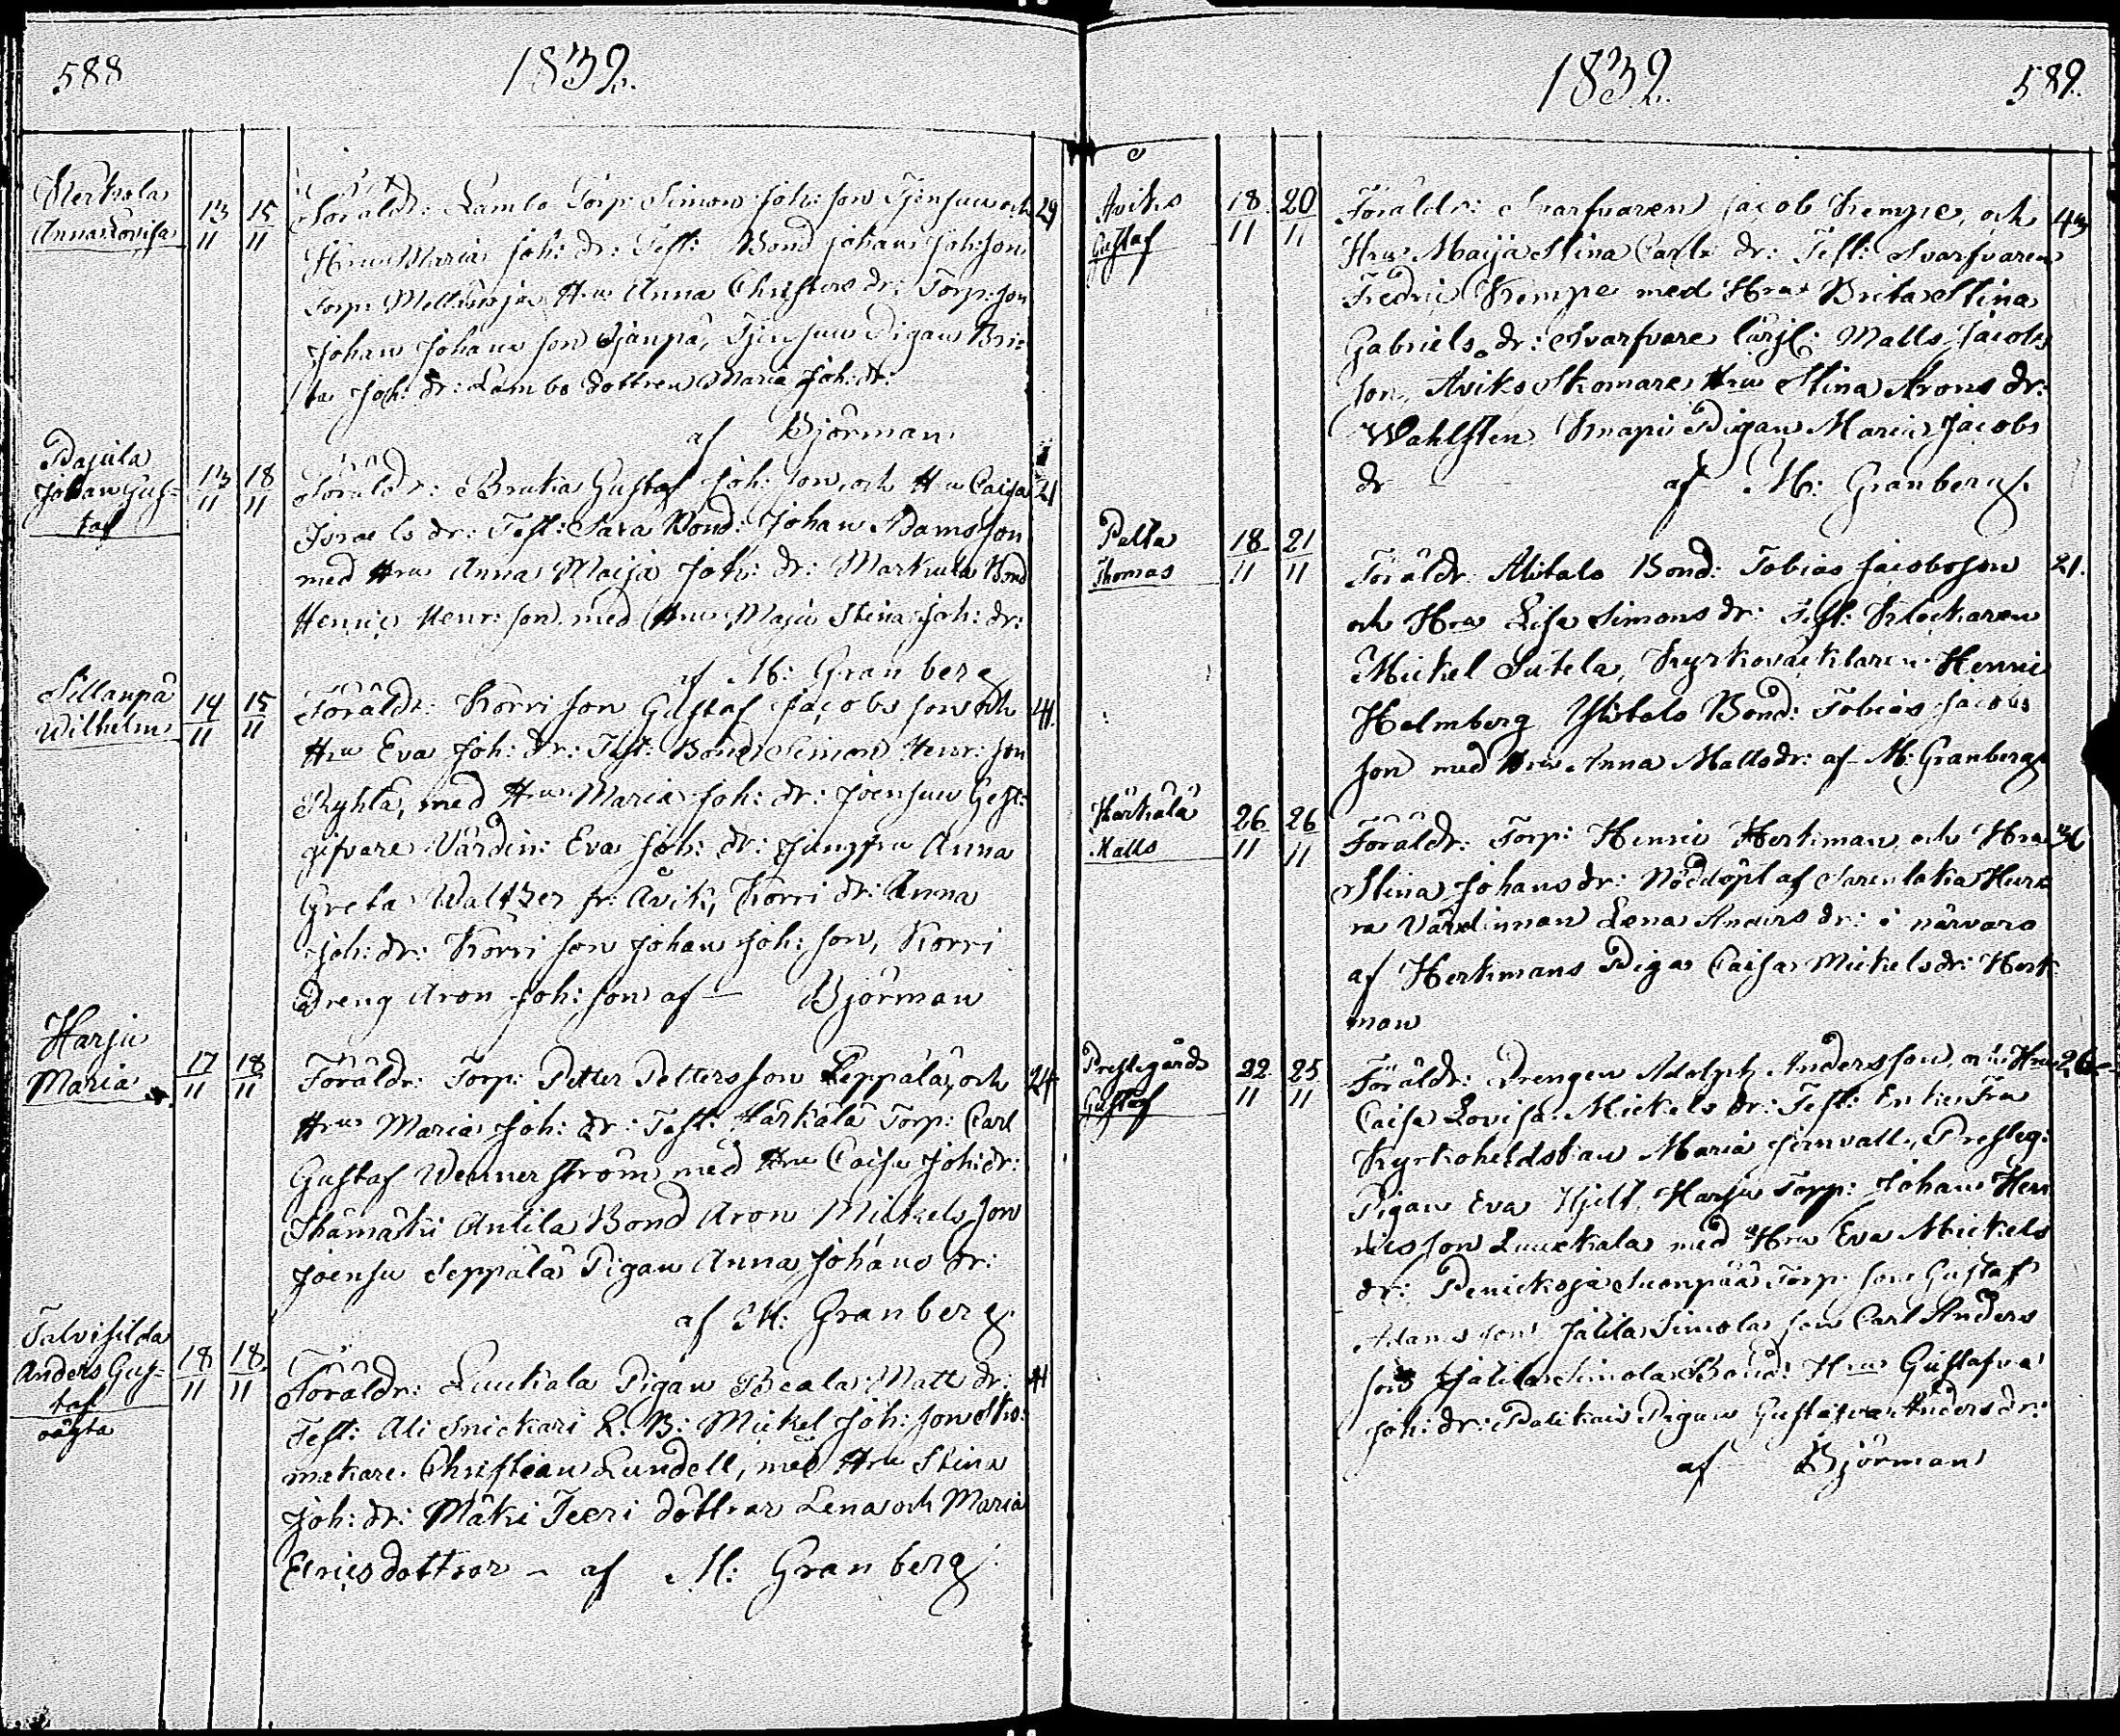 588
1839.
Merkola
Anna Lovisa
13/11 15/11
Föräldr: Lambo Torp: Simon Joh: son Tjensuu och 29
Hru Maria Joh: dr: Test: Bond Johan Joh: son
Torp: Mellansjö Hru Anna Christers dr: Torp: son
Johan Johans son Ojanpä, Tjensuu Pigan Bri-
ta Joh: dr: Lambo dottren Maria Joh: dr:
af Björman
Pajula
Johan Gus-
taf
13/11 18/11
Föräldr: Bruka Gustaf Joh: son och Hru Caisa 21
Israels dr: Test: Sara Bond: Johan Adams son
med Hru Anna Maija Joh: dr: Markula Bond
Henric Henr: son med Hru Maja Stina Joh: dr:
af M: Granberg
Sillanpä
Wilhelm
14/11 15/11
Föräldr: Korri son Gustaf Jacobs son och 41.
Hru Eva Joh: dr: Test: Bond Simon Henr: son
Ryhtä, med Hru Maria Joh: dr: Joensuu Gest-
gifvare Värdin: Eva Joh: dr: Jungfru Anna
Greta Waltzer fr: Åvik, Korri dr: Anna
Joh: dr: Korri son Johan Joh: son, Korri
Dreng Aron Joh: son af — Björman
Harju
Maria
17/11 18/11
Föräldr: Torp: Petter Petters son Seppälä, och 24
Hru Maria Joh: dr: Test: Härkälä Torp: Carl
Gustaf Wennerström med Hru Caisa Joh: dr:
Ihamäki Antila Bond Aron Mickels son
Joensu Seppälä Pigan Anna Johans dr:
af M: Granberg.
Talvisilda
Anders Gus-
taf
oägta
18/11 18/11
Föräldr: Luukala Pigan Beata Matt dr: 41
Test: Ali Snickari L. B: Mickel Joh: son Sko-
makare Christian Lundell, med Hru Stina
Joh: dr: Mäki Teeri döttrar Lena och Maria
Ericsdottror — af M: Granberg.
1839. 589.
Aviks
Gustaf
18/11 20/11
Föräldr: Svarfvaren Jacob Kempe, och 43
Hru Maija Stina Carls dr: Test: Svarfvaren
Fredric Kempe med Hru Brita Stina
Gabriels dr: Svarfvare lärjl: Matts Jacobs
son, Aviks Skomare Hru Stina Arons dr:
Wahlsten Knapi Pigan Maria Jacobs
dr af M: Granberg.
Pelta
Thomas
18/11 21/11
Föräldr Alitalo Bond: Tobias Jacobsson 21.
och Hru Lisa Simons dr: Test: Klockaren
Mickel Sutela, Kyrkoväktaren Henric
Holmberg Ylitalo Bond: Tobias Jacobs
son med Hru Anna Mattsdr: af M: Granberg
Härkälä
Matts
26/11 26/11
Föräldr: Torp: Henric Herkman och Hru 36
Stina Johans dr: Nöddöpt af Sarenlaka Hur-
ra Värdinnan Lena Anders dr: i närvaro
af Herkmans Piga Caisa Mickels dr: Herk
man
Prestegårds
Gustaf
22/11 25/11
Föräldr: Drengen Adolph Anders son, och Hru 26
Caisa Lovisa Mickels dr: Test: Enke Fru
Kyrkoherdskan Maria Jernvall, Presteg:
Pigan Eva Hjelt, Harju Torp: Johan Hen
rics son Luukala med Hru Eva Mickels
dr: Penickoja Suonpää Torp: son Gustaf
Adams son Jalila Simola son Carl Anders
son Jalila Simola Bond: Hru Gustafva
Joh: dr: Palikais Pigan Gustafva Anders dr:
af Björman